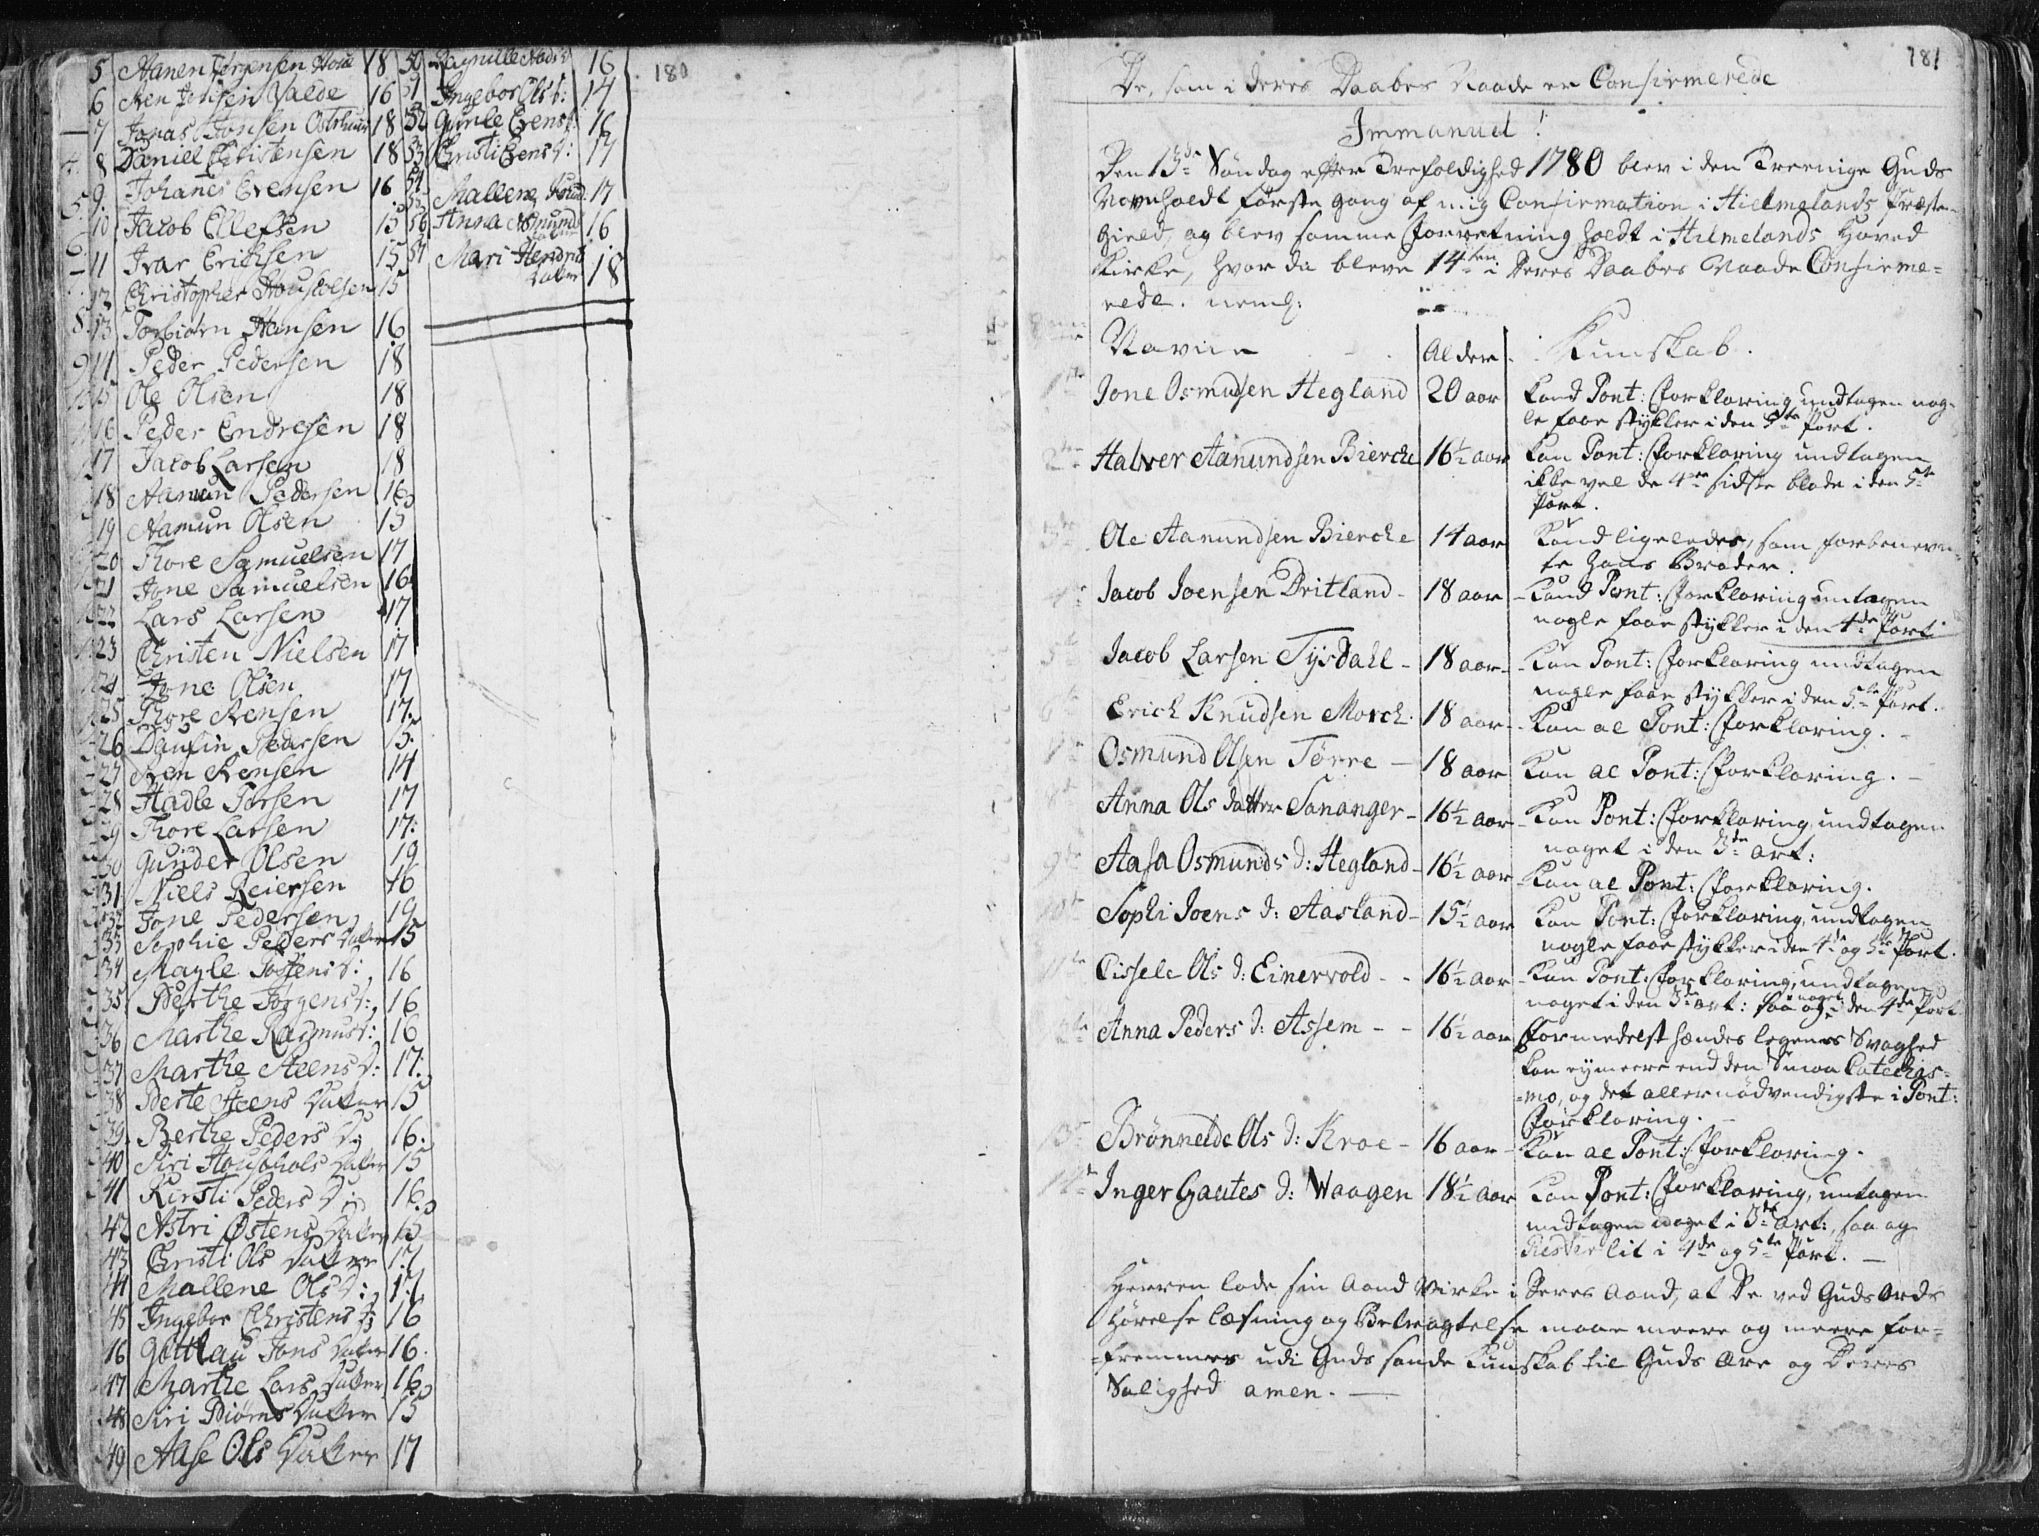 180
5 Aanen Jørgensen 18
6 Aen Jensen Valde 16
7 Jonas Jonsen 18
8 Daniel Christensen 18
9 Johanes Evensen 16
10 Jacob Ellefsen 15
11 Ivar Erichsen 15
12 Christopher 15
13 Torbiørn Hansen 16
14 Peder Pedersen 18
15 Ole Olsen 18
16 Peder Endresen 18
17 Jacob Larsen 18
18 Aamun Pedersen 16
19 Aamun Olsen 15
20 Thore Samuelsen 17
21 Jone Samuelsen 16
22 Lars Larsen 17
23 Christen Nielsen 17
24 Jone Olsen 17
25 Thore Aensen 17
26 Pedersen 15
27 Aen Aensen 14
28 Hadle Torsen 17
29 Thore Larsen 17:
30 Gunder Olsen 19
31 Niels Reiersen 16
32 Jone Pedersen 19
33 Sophie Peders Datter 15
34 Magle Tostens D: 16
35 Berthe Jørgens D: 16
36 Marthe Rasmus D: 16
37 Marthe Steens D: 17:
38 Berte Steens Datter 15
39 Berthe Peders D: 16.
40 Siri Datter 15
41 Kirsti Peders D: 16
42 Astri Østens Datter 15
43 Christi Ols Datter 17
44 Mallene Ols D: 17
45 Ingebor Christens D: 16
46 Gottlau Jons Datter 16.
47 Marthe Lars Datter 16
48 Siri Biørns Datter 15
49 Aase Ols Datter 17
50 Ragnille 16
51 Ingebor Ols D: 17
52 Gunle Evens D: 16
53 Christi Evens D: 17
54
55 Mallene 17
56 Anna Asmunds Datter 16
57 Mari Henrichs
Datter 18
181
De, som i deres Daabes Naade er Confirmerede
Immanuel!
Den 13de Søndag efter Trefoldighed 1780 blev i den Treenige Guds
Navn holdt første gang af mig Confirmation i Hielmelands Præste-
gield, og blev samme Forretning holdt i Hielmelands Hoved
Kirke, hvor da bleve 14ten i Deres Daabes Naade Confirme=
rede. neml:
Navne Alder. Kunskab.
1ste Jone Osmudsen Hegland 20 aar Kand Pont: Forklaring undtagen nog-
le faae stykker i den 5te Part.
2den Halver Aanundsen Bierche 16½ aar Kan Pont: Forklaring undtagen
ikke vel de 4re sidste blade i den 5te
Part.
3die Ole Aanundsen Bierche 14 aar Kand ligeledes, som forbenevn-
te hans Broder.
4de Jacob Joensen Dritland - 18 aar - Kand Pont: Forklaring untagen
nogle faae stykker i den 4de Part
5te Jacob Larsen Tÿsdahl - 18 aar - Kan Pont: Forklaring undtagen
nogle faae stykker i den 5te Part.
6te Erich Knudsen Morch. 18 aar - Kan al Pont: Forklaring. -
7de Osmund Olsen Tørre - 18 aar Kan al Pont: Forklaring. -
8de Anna Ols datter Sananger - 16½ aar - Kan Pont: Forklaring, undtagen
noget i den 3die art:
9de Aasa Osmunds d: Hegland - 16½ aar - Kan al Pont: Forklaring.
10de Sophi Joens d: Aasland - 15½ aar Kan Pont: Forklaring, undtagen
nogle faae stykker i den 4de og 5te Part.
11te Cissele Ols d: Einervold - - 16½ aar - Kan Pont: Forklaring, undtagen
noget i den 3die art: saa og noget i den 4de Part
12te Anna Peders d: Assem - - 16½ aar Formedelst hendes legemes Svaghed
kan ey meere end den Smaa Catechis=
=mo, og det aller nødvendigste i Pont:
Forklaring. -
13de Brønnelde Ols d: Kroe - 16 aar - Kan al Pont: Forklaring.
14de Inger Gautes d: Waagen 18½ aar Kan Pont: Forklaring, untagen
undtagen noget i 3die art:, saa og
lit i 4de og 5te Part. -
Herren lade sin Aand Virke i Deres Aand, at De ved Guds Ords
hørelse læsning og Betragtelse maae meere og meere for=
=fremmes udi Guds sande Kunskab til Guds Ære og Deres
Salighed amen. -